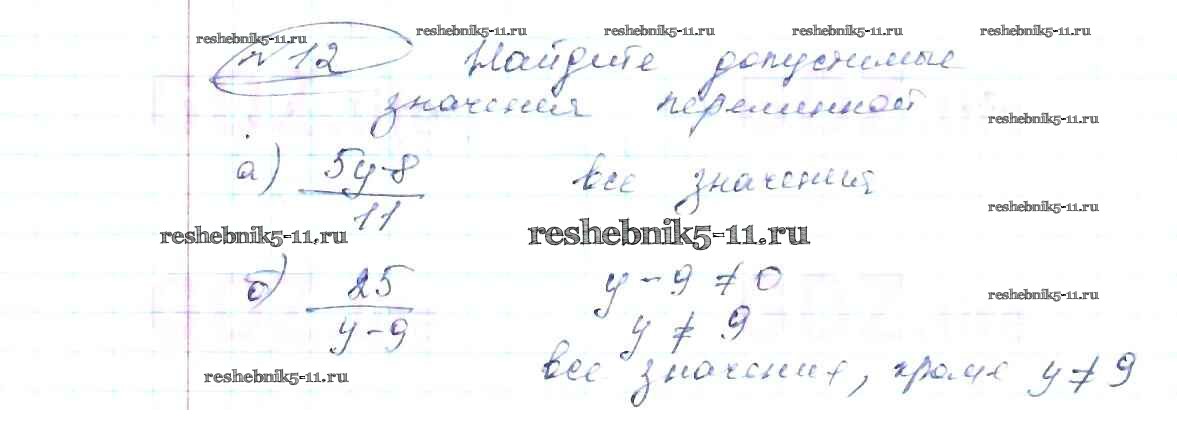 reshebnik5-11.ru reshebnik5-11.ru reshebnik5-11.ru reshebnik5-11.ru reshebnik5-11.ru
№ 12 Найдите допустимые
значения переменной
reshebnik5-11.ru
а) 5y-8 / 11 все значения
reshebnik5-11.ru
reshebnik5-11.ru reshebnik5-11.ru
б) 25 / y-9 y-9 ≠ 0
reshebnik5-11.ru
y ≠ 9
все значения, кроме y ≠ 9
reshebnik5-11.ru